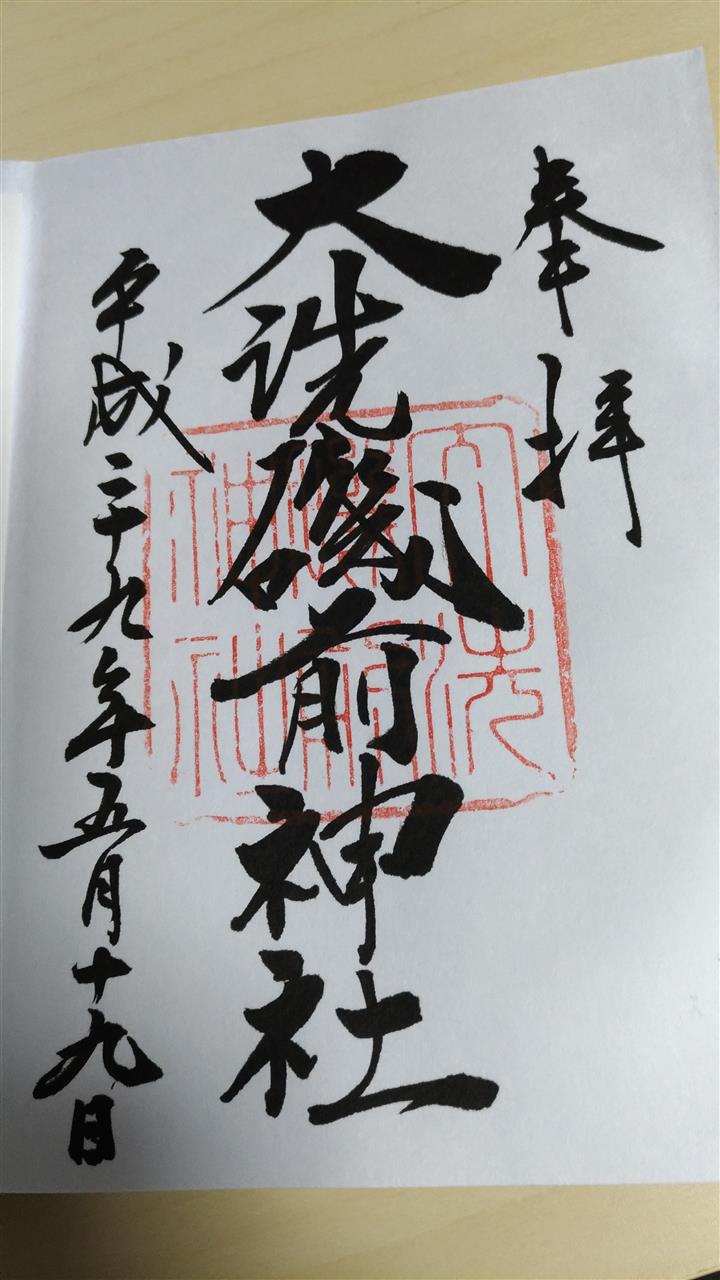 奉拝
大洗磯前神社
平成二十九年五月十九日
大洗
磯前
神社